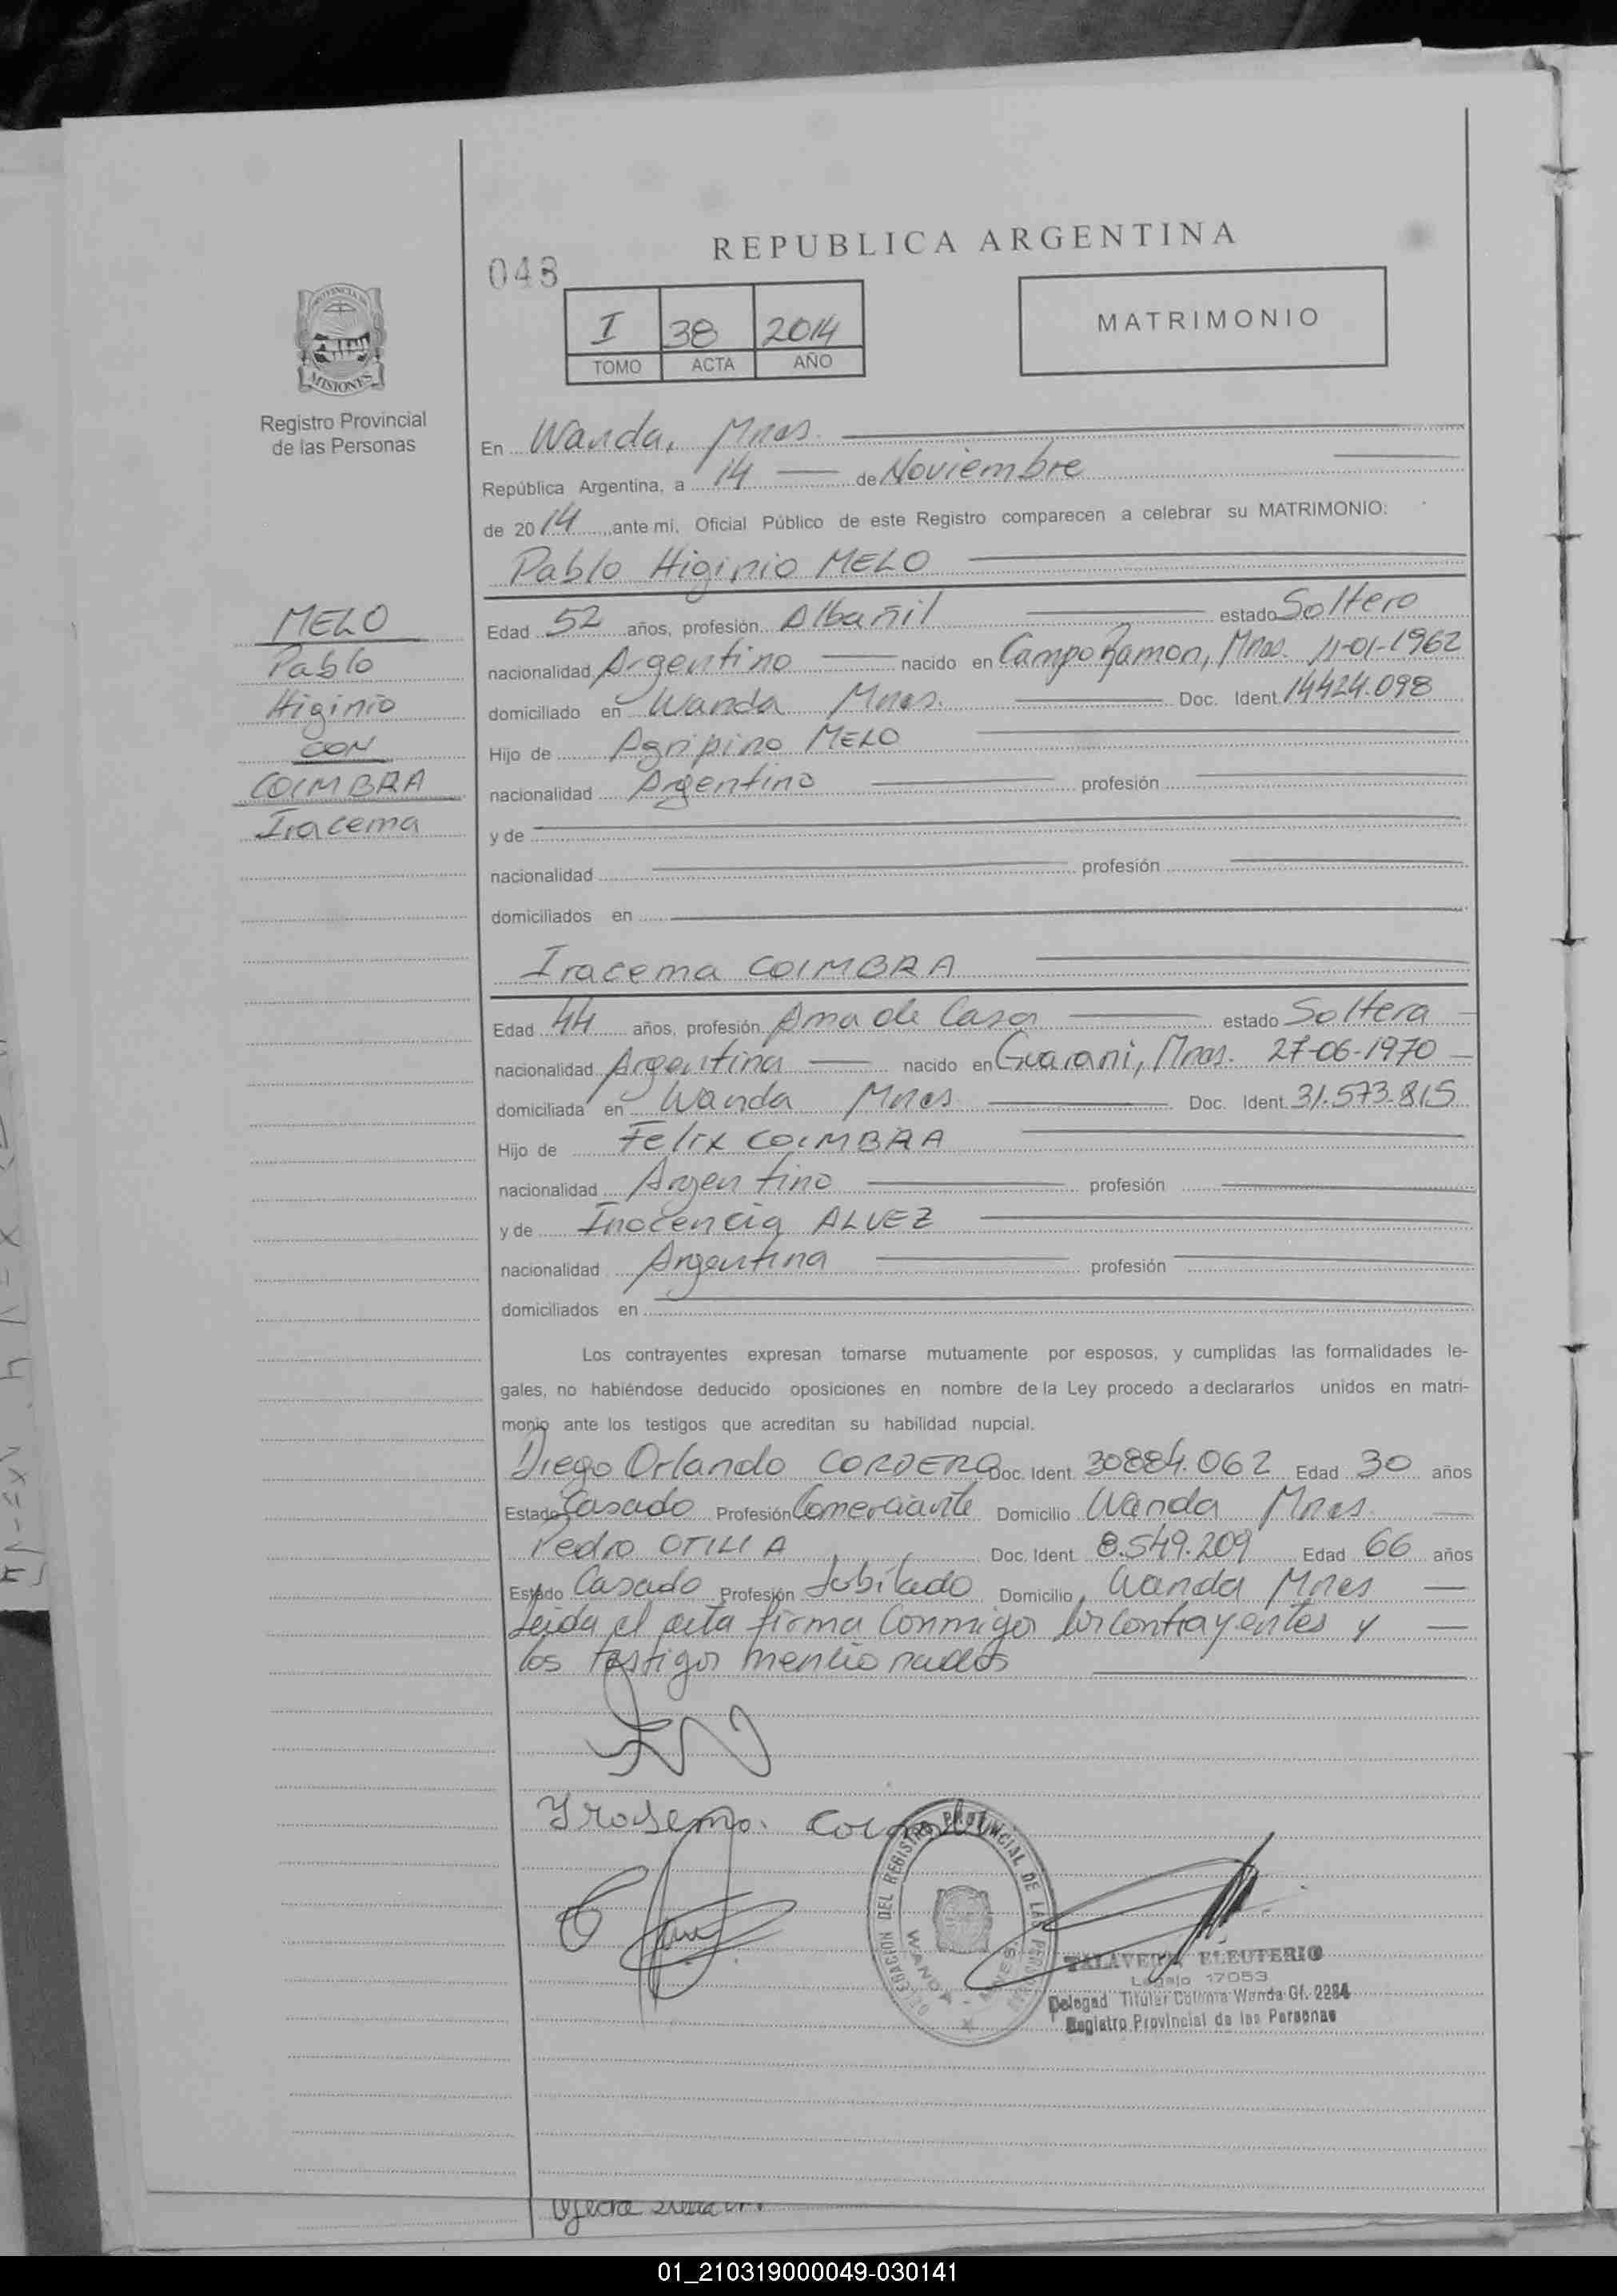 REPUBLICA ARGENTINA
048
I 38 2014
TOMO ACTA AÑO
MATRIMONIO
PROVINCIA DE
MISIONES
Registro Provincial
de las Personas
En Wanda, Mnes.
República Argentina, a 14 de Noviembre
de 2014 ante mi, Oficial Público de este Registro comparecen a celebrar su MATRIMONIO:
Pablo Higinio MELO
MELO
Pablo
Higinio
CON
COIMBRA
Iracema
Edad 52 años, profesión Albañil estado Soltero
nacionalidad Argentino nacido en Campo Ramon, Mnes. 11-01-1962
domiciliado en Wanda Mnes. Doc. Ident. 14424.098
Hijo de Agripino MELO
nacionalidad Argentino profesión
y de
nacionalidad profesión
domiciliados en
Iracema COIMBRA
Edad 44 años, profesión Ama de Casa estado Soltera
nacionalidad Argentina nacido en Guarani, Mnes. 27-06-1970
domiciliada en Wanda Mnes Doc. Ident. 31.573.815
Hijo de Felix COIMBRA
nacionalidad Argentino profesión
y de Inocencia ALVEZ
nacionalidad Argentina profesión
domiciliados en
Los contrayentes expresan tomarse mutuamente por esposos, y cumplidas las formalidades le-
gales, no habiéndose deducido oposiciones en nombre de la Ley procedo a declararlos unidos en matri-
monio ante los testigos que acreditan su habilidad nupcial.
Diego Orlando CORDERO Doc. Ident. 30884.062 Edad 30 años
Estado Casado Profesión Comerciante Domicilio Wanda Mnes.
Pedro OTILIA Doc. Ident. 8.549.209 Edad 66 años
Estado Casado Profesión Jubilado Domicilio Wanda Mnes
Leida el acta firma conmigo los contrayentes y
los testigos mencionados
DELEGACION DEL REGISTRO PROVINCIAL DE LAS PERSONAS
WANDA - MNES
TALAVERA ELEUTERIO
Legajo 17053
Delegad Titular Colonia Wanda Of. 2284
Registro Provincial de las Personas
01_210319000049-030141